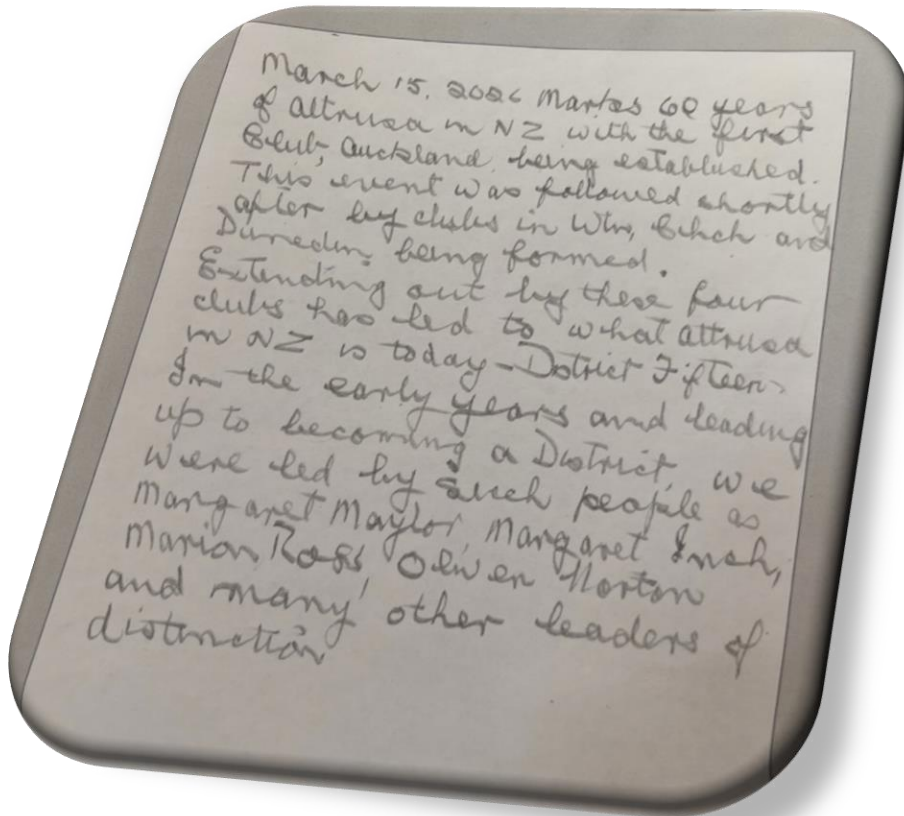 March 15, 2026 Marks 60 years
of Altrusa in NZ with the first
Club, Auckland being established.
This event was followed shortly
after by clubs in Wtn, Chch and
Dunedin, being formed.
Extending out by these four
clubs has led to what Altrusa
in NZ is today - District Fifteen.
In the early years and leading
up to becoming a District, we
were led by such people as
Margaret Maylor, Margaret Inch,
Marion Ross, Olwen Norton
and many other leaders of
distinction